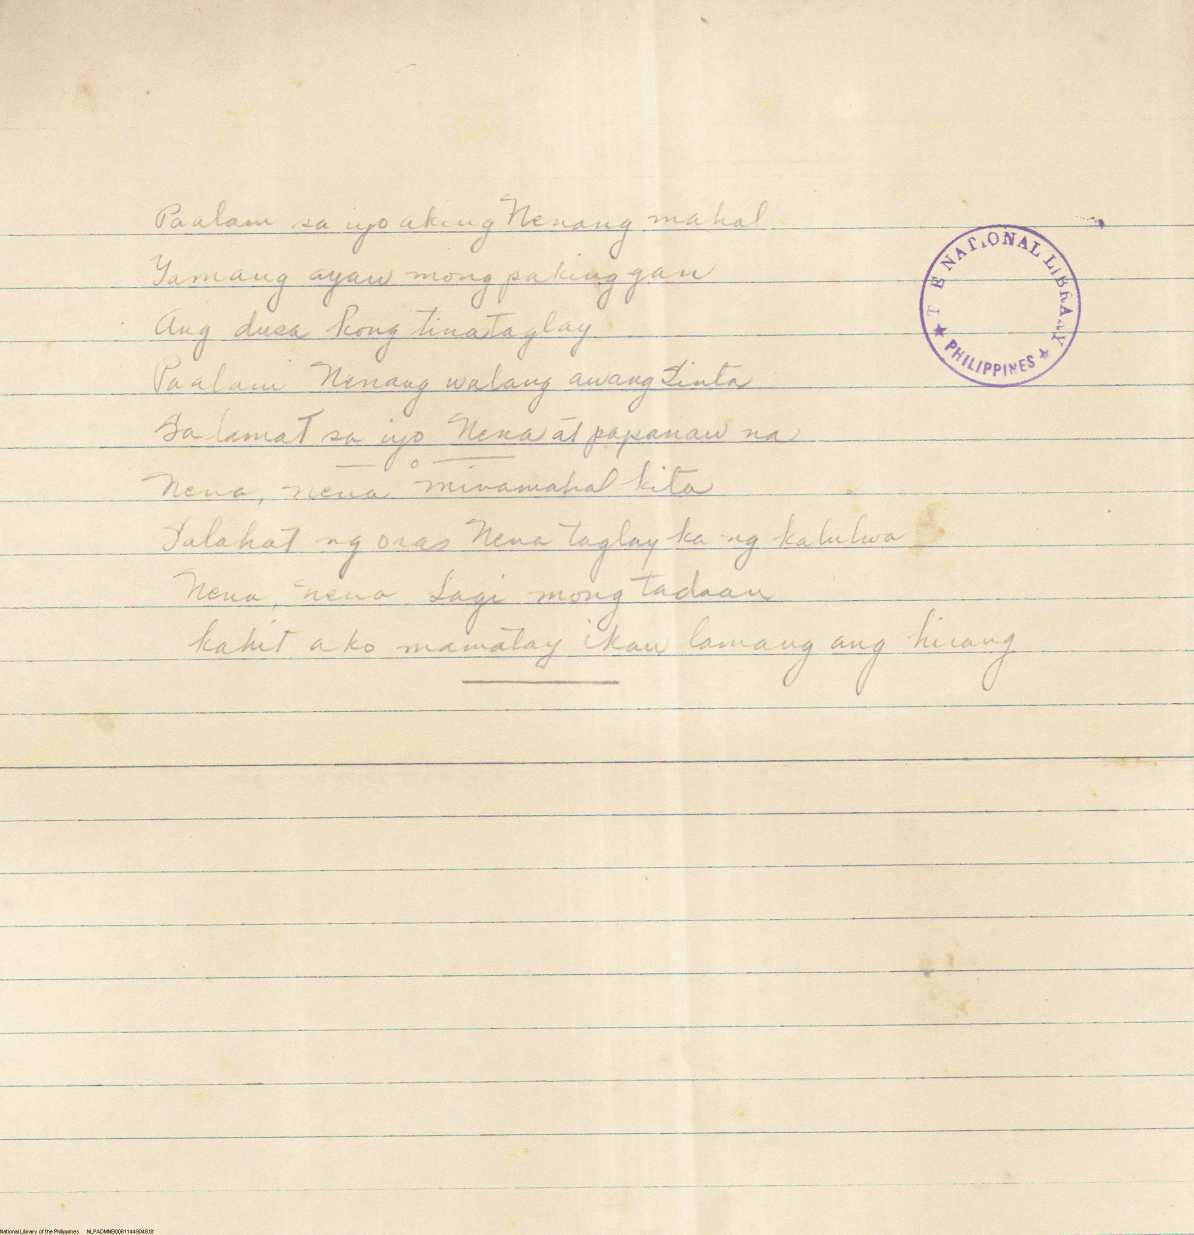 Paalam sa iyo aking Nenang mahal
Yamang ayaw mong pakinggan
Ang dusa kong tinataglay
Paalam Nenang walang awang sinta
Salamat sa iyo Nena at papanaw na
Nena, nena minamahal kita
Salahat ng oras Nena taglay ka ng kalulwa
Nena, nena Lagi mong tadaan
kahit ako mamatay ikaw lamang ang hirang
THE NATIONAL LIBRARY
PHILIPPINES
National Library of the Philippines NLPADMNB00611449048.tif